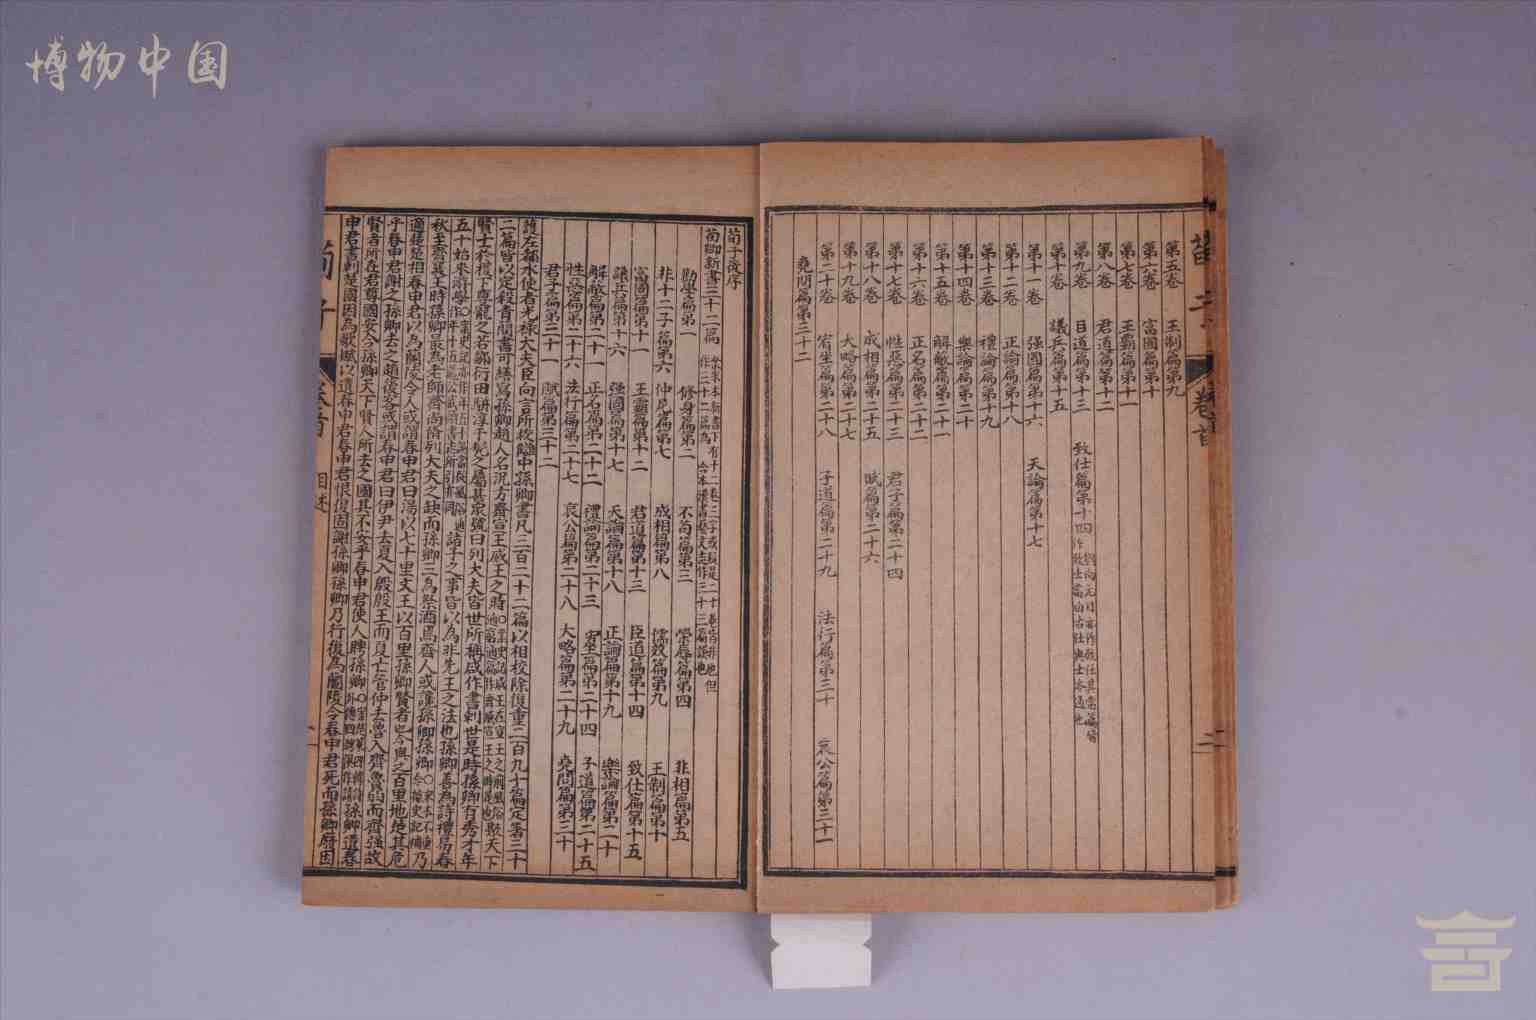 博物中国
第五卷 王制篇第九
第六卷 富國篇第十
第七卷 王霸篇第十一
第八卷 君道篇第十二
第九卷 臣道篇第十三 致仕篇第十四
第十卷 議兵篇第十五
第十一卷 强國篇第十六 天論篇第十七
第十二卷 正論篇第十八
第十三卷 禮論篇第十九
第十四卷 樂論篇第二十
第十五卷 解蔽篇第二十一
第十六卷 正名篇第二十二
第十七卷 性惡篇第二十三 君子篇第二十四
第十八卷 成相篇第二十五 賦篇第二十六
第十九卷 大略篇第二十七
第二十卷 宥坐篇第二十八 子道篇第二十九 法行篇第三十 哀公篇第三十一
堯問篇第三十二
荀子 卷首 二
荀子後序
荀卿新書三十二篇
勸學篇第一 修身篇第二 不苟篇第三 榮辱篇第四 非相篇第五
非十二子篇第六 仲尼篇第七 成相篇第八 儒效篇第九 王制篇第十
富國篇第十一 王霸篇第十二 君道篇第十三 臣道篇第十四 致仕篇第十五
議兵篇第十六 强國篇第十七 天論篇第十八 正論篇第十九 樂論篇第二十
解蔽篇第二十一 正名篇第二十二 禮論篇第二十三 宥坐篇第二十四 子道篇第二十五
性惡篇第二十六 法行篇第二十七 哀公篇第二十八 大略篇第二十九 堯問篇第三十
君子篇第三十一 賦篇第三十二
護左都水使者光祿大夫臣向言所校讎中孫卿書凡三百二十二篇以相校除復重二百九十篇定著三十
二篇皆以定殺青簡書可繕寫孫卿趙人名況方齊宣王威王之時 聚天下
賢士於稷下尊寵之若鄒衍田駢淳于髡之屬甚眾號曰列大夫皆世所稱咸作書刺世是時孫卿有秀才年
五十始來游學 諸子之事皆以為非先王之法也孫卿善為詩禮易春
秋至齊襄王時孫卿最為老師齊尚修列大夫之缺而孫卿三為祭酒焉齊人或讒孫卿孫卿 乃
適楚楚相春申君以為蘭陵令人或謂春申君曰湯以七十里文王以百里孫卿賢者也今與之百里地楚其危
乎春申君謝之孫卿去之趙後客或謂春申君曰伊尹去夏入殷殷王而夏亡管仲去魯入齊魯弱而齊强故
賢者所在君尊國安今孫卿天下賢人所去之國其不安乎春申君使人聘孫卿 孫卿遺春
申君書刺楚國因為歌賦以遺春申君春申君恨復固謝孫卿孫卿乃行復為蘭陵令春申君死而孫卿廢因
荀子 卷首